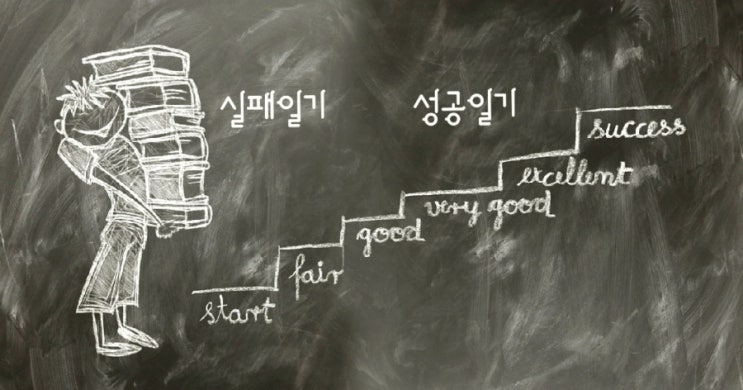 실패일기
성공일기
success
excellent
very good
good
fair
start